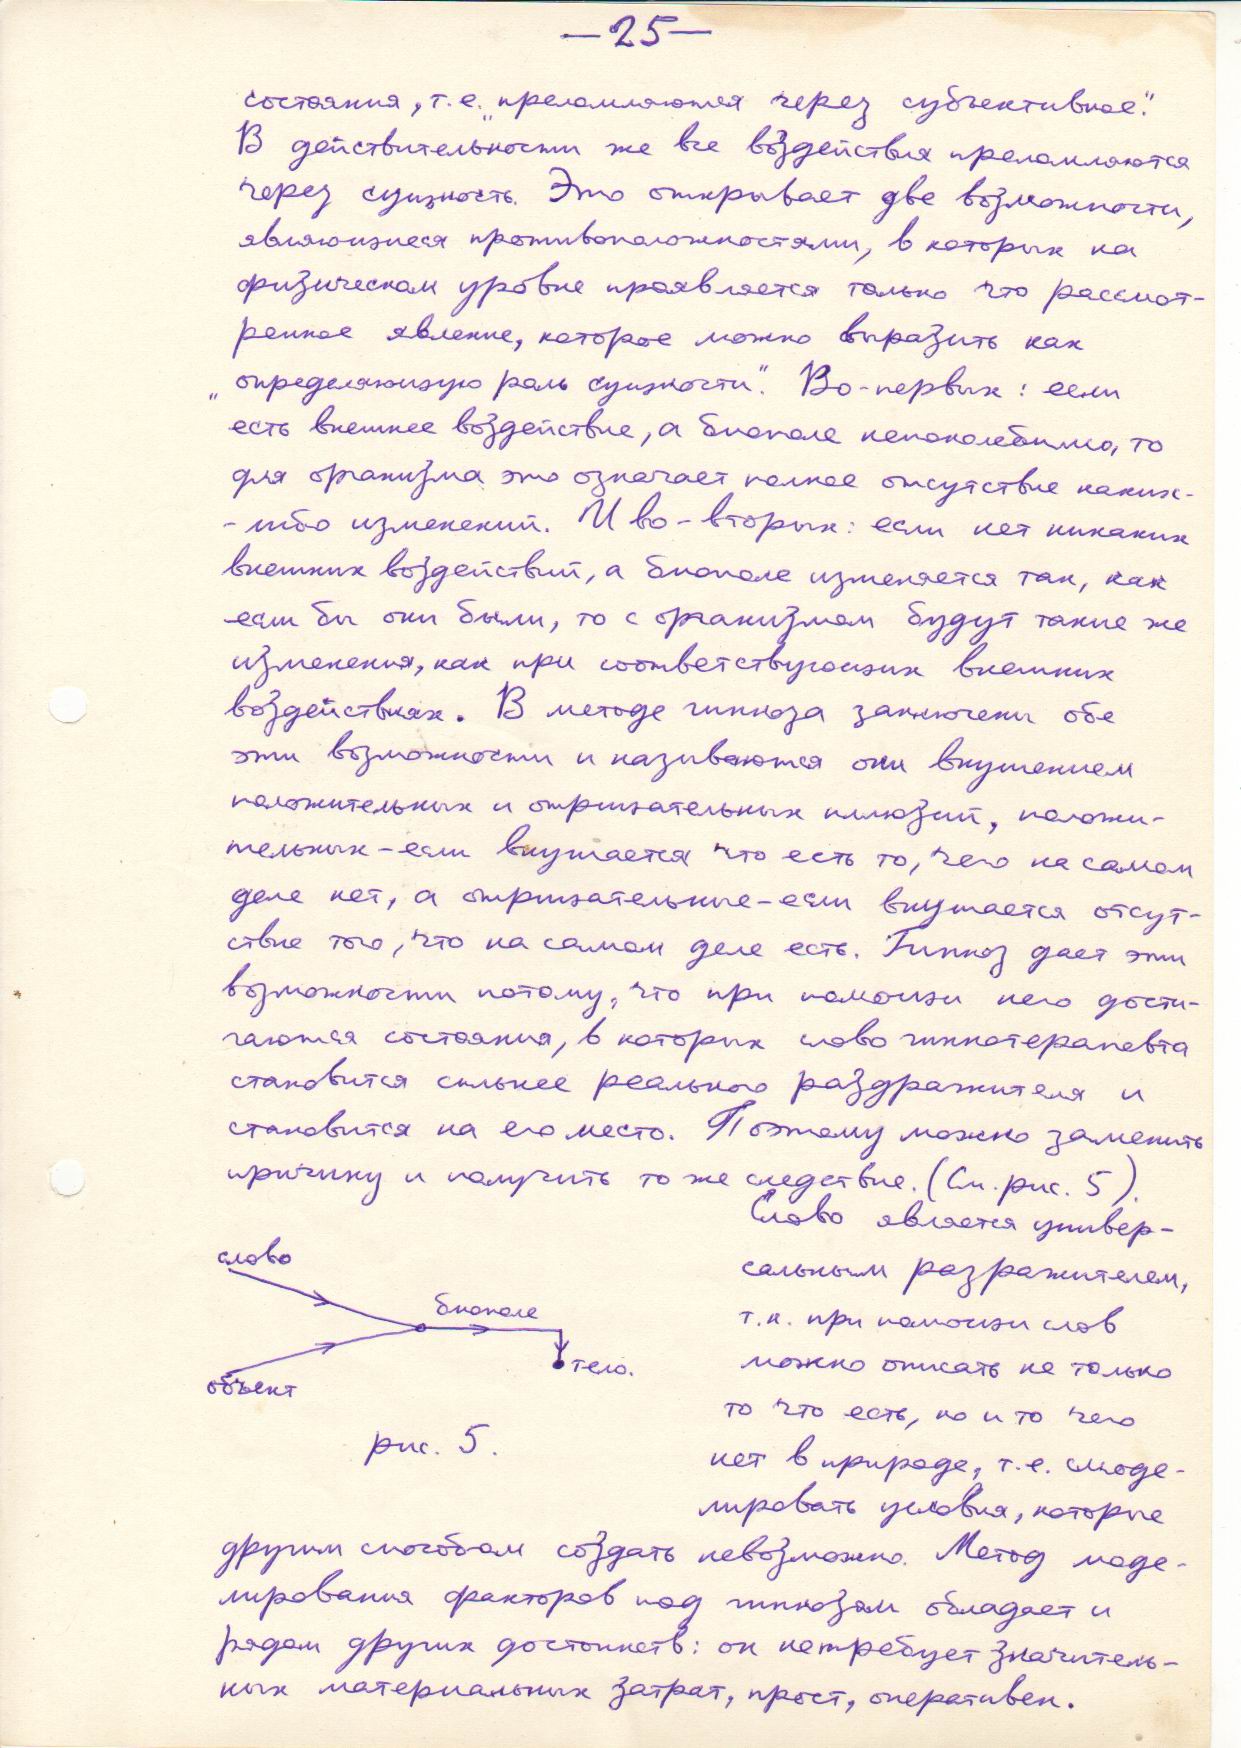 —25—
состояния, т.е. „преломляются через субъективное."
В действительности же все воздействия преломляются
через сущность. Это открывает две возможности,
являющиеся противоположностями, в которых на
физическом уровне проявляется только что рассмот-
ренное явление, которое можно выразить как
„определяющую роль сущности". Во-первых: если
есть внешнее воздействие, а биополе непоколебимо, то
для организма это означает полное отсутствие каких-
-либо изменений. И во-вторых: если нет никаких
внешних воздействий, а биополе изменяется так, как
если бы они были, то с организмом будут такие же
изменения, как при соответствующих внешних
воздействиях. В методе гипноза заключены обе
эти возможности и называются они внушением
положительных и отрицательных иллюзий, положи-
тельных-если внушается что есть то, чего на самом
деле нет, а отрицательные-если внушается отсут-
ствие того, что на самом деле есть. Гипноз дает эти
возможности потому, что при помощи него дости-
гаются состояния, в которых слово гипнотерапевта
становится сильнее реального раздражителя и
становится на его место. Поэтому можно заменить
причину и получить то же следствие. (См. рис. 5).
Слово является универ-
сальным разражителем,
т.к. при помощи слов
можно описать не только
то что есть, но и то чего
нет в природе, т.е. смоде-
лировать условия, которые
слово
биополе
тело.
объект
рис. 5.
другим способом создать невозможно. Метод моде-
лирования факторов под гипнозом обладает и
рядом других достоинств: он не требует значитель-
ных материальных затрат, прост, оперативен.